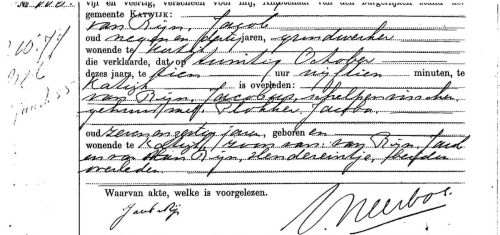 vijf en veertig, verscheen voor mij, Ambtenaar van den burgerlijken stand der
gemeente KATWIJK:
van Rijn, Jacob
oud negen en veertig jaren, grondwerker
wonende te Katwijk
die verklaarde, dat op twintig October
dezes jaars, te tien uur vijftien minuten, te
Katwijk is overleden:
van Rijn, Jacobus, schelpenvisscher
gehuwd met Plokker, Jacoba
oud zeven en zeventig jaren, geboren en
wonende te Katwijk zoon van: van Rijn, Jacob
en van van Rijn, Hendereintje, beiden
overleden
Waarvan akte, welke is voorgelezen.